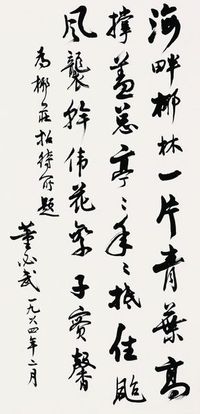 海畔椰林一片青葉高
撐蓋總亭〻年〻抵住颱
風襲幹伟花繁子實馨
為椰莊招待所題
董必武一九六四年二月